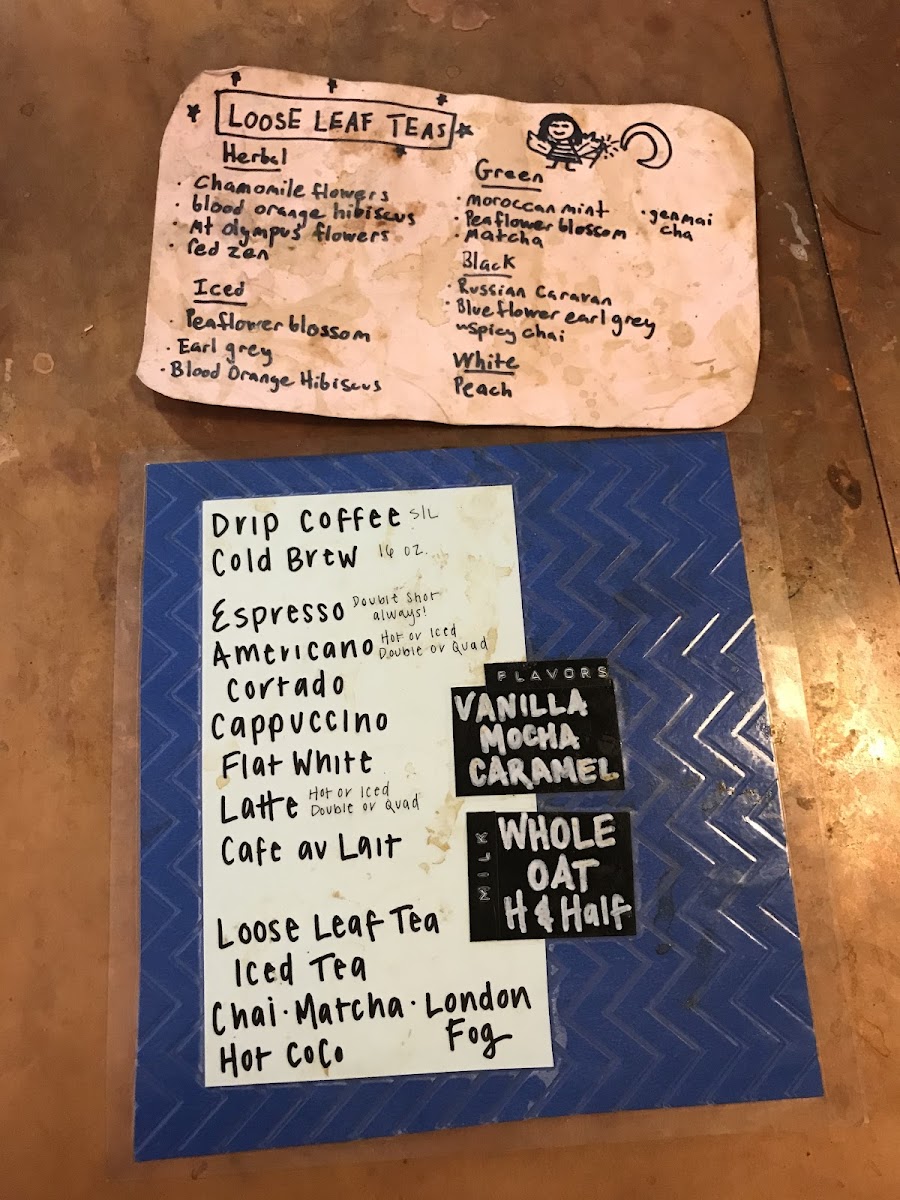 LOOSE LEAF TEAS
Herbal
· Chamomile flowers
· blood orange hibiscus
· Mt Olympus flowers
· Red zen
Iced
· Peaflower blossom
· Earl grey
· Blood Orange Hibiscus
Green
· Moroccan mint
· Peaflower blossom
· Matcha
· genmai
cha
Black
· Russian Caravan
· Blue flower earl grey
~spicy chai
White
Peach
Drip Coffee S/L
Cold Brew 16 oz.
Espresso Double Shot
always!
Americano Hot or Iced
Double or Quad
Cortado
Cappuccino
Flat White
Latte Hot or Iced
Double or Quad
Cafe au Lait
Loose Leaf Tea
Iced Tea
Chai · Matcha · London
Fog
Hot CoCo
FLAVORS
VANILLA
MOCHA
CARAMEL
MILK
WHOLE
OAT
H & Half